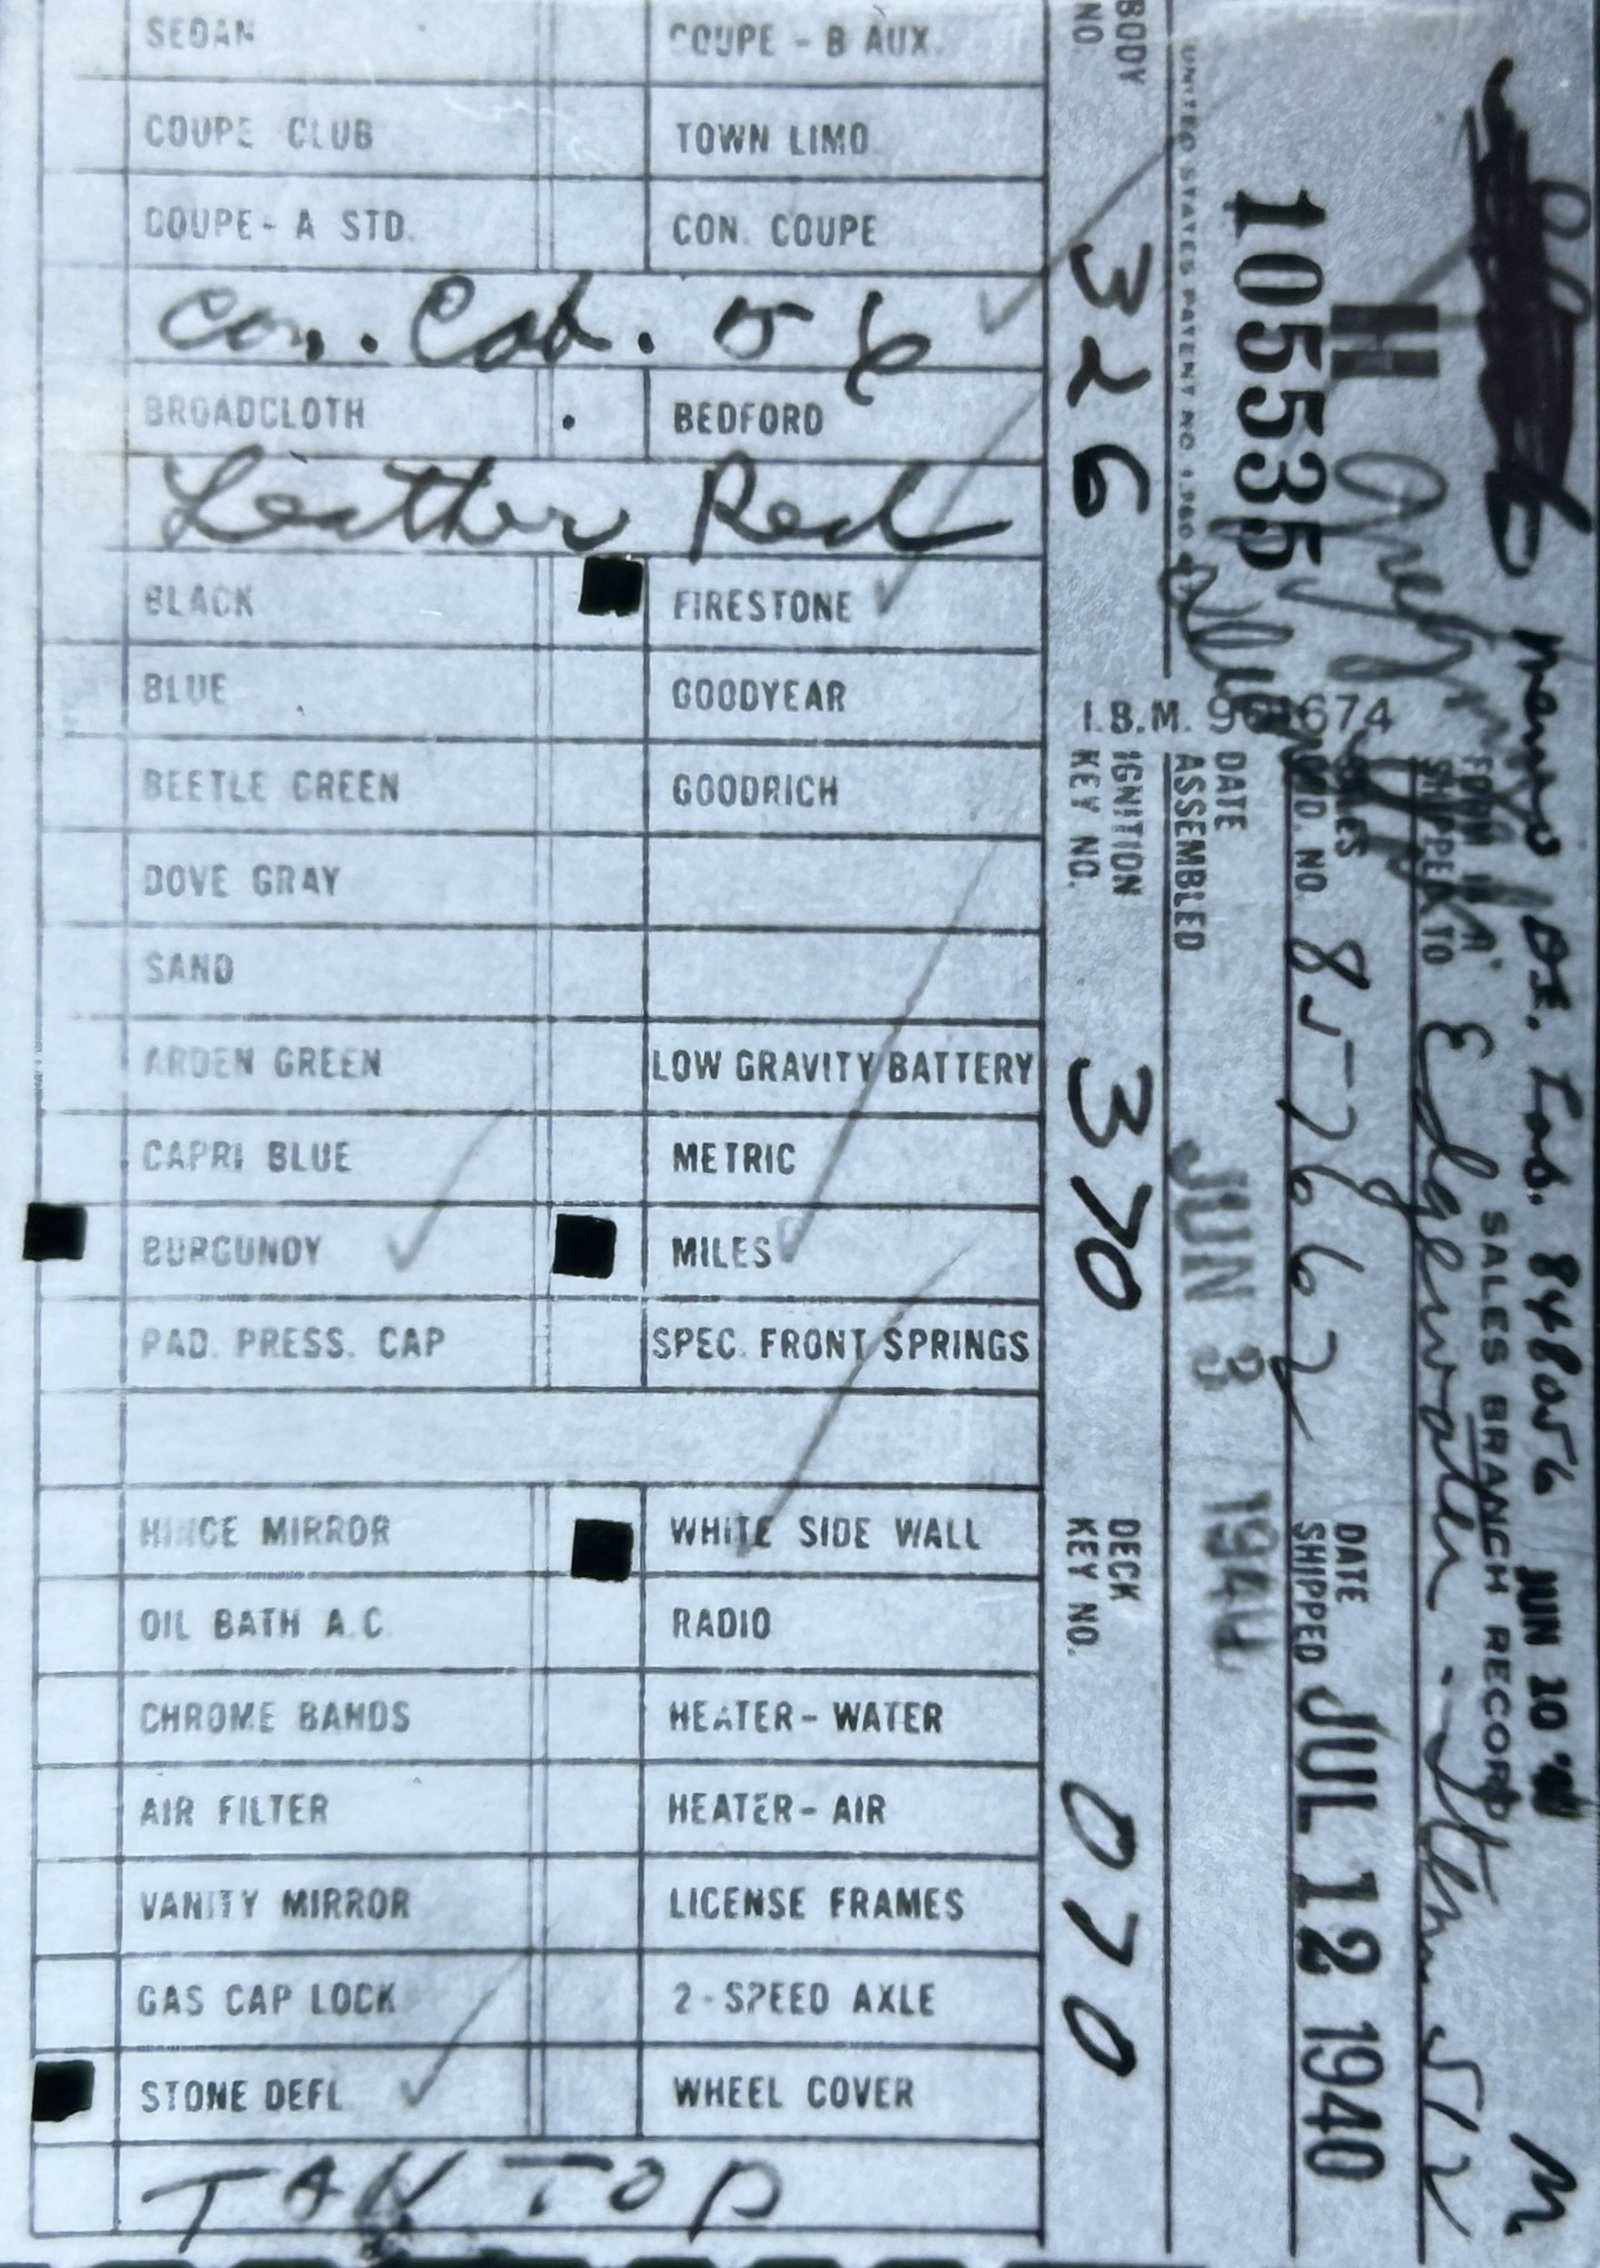 SEDAN
COUPE - B AUX.
COUPE CLUB
TOWN LIMO
COUPE - A STD.
CON. COUPE
Con. Cab. 56
BROADCLOTH
BEDFORD
Leather Red
BLACK
FIRESTONE
BLUE
GOODYEAR
BEETLE GREEN
GOODRICH
DOVE GRAY
SAND
ARDEN GREEN
LOW GRAVITY BATTERY
CAPRI BLUE
METRIC
BURGUNDY
MILES
RAD. PRESS. CAP
SPEC. FRONT SPRINGS
HINGE MIRROR
WHITE SIDE WALL
OIL BATH A.C.
RADIO
CHROME BANDS
HEATER - WATER
AIR FILTER
HEATER - AIR
VANITY MIRROR
LICENSE FRAMES
GAS CAP LOCK
2 - SPEED AXLE
STONE DEFL.
WHEEL COVER
TAN TOP
SALES BRANCH RECORD
JUN 10
SHIPPED TO Edgewater 512
H
105535
NO. 857662
DATE SHIPPED JUL 12 1940
UNITED STATES PATENT NO
DATE ASSEMBLED JUN 3 194
I.B.M. 674
BODY NO. 326
IGNITION KEY NO. 370
DECK KEY NO. 070